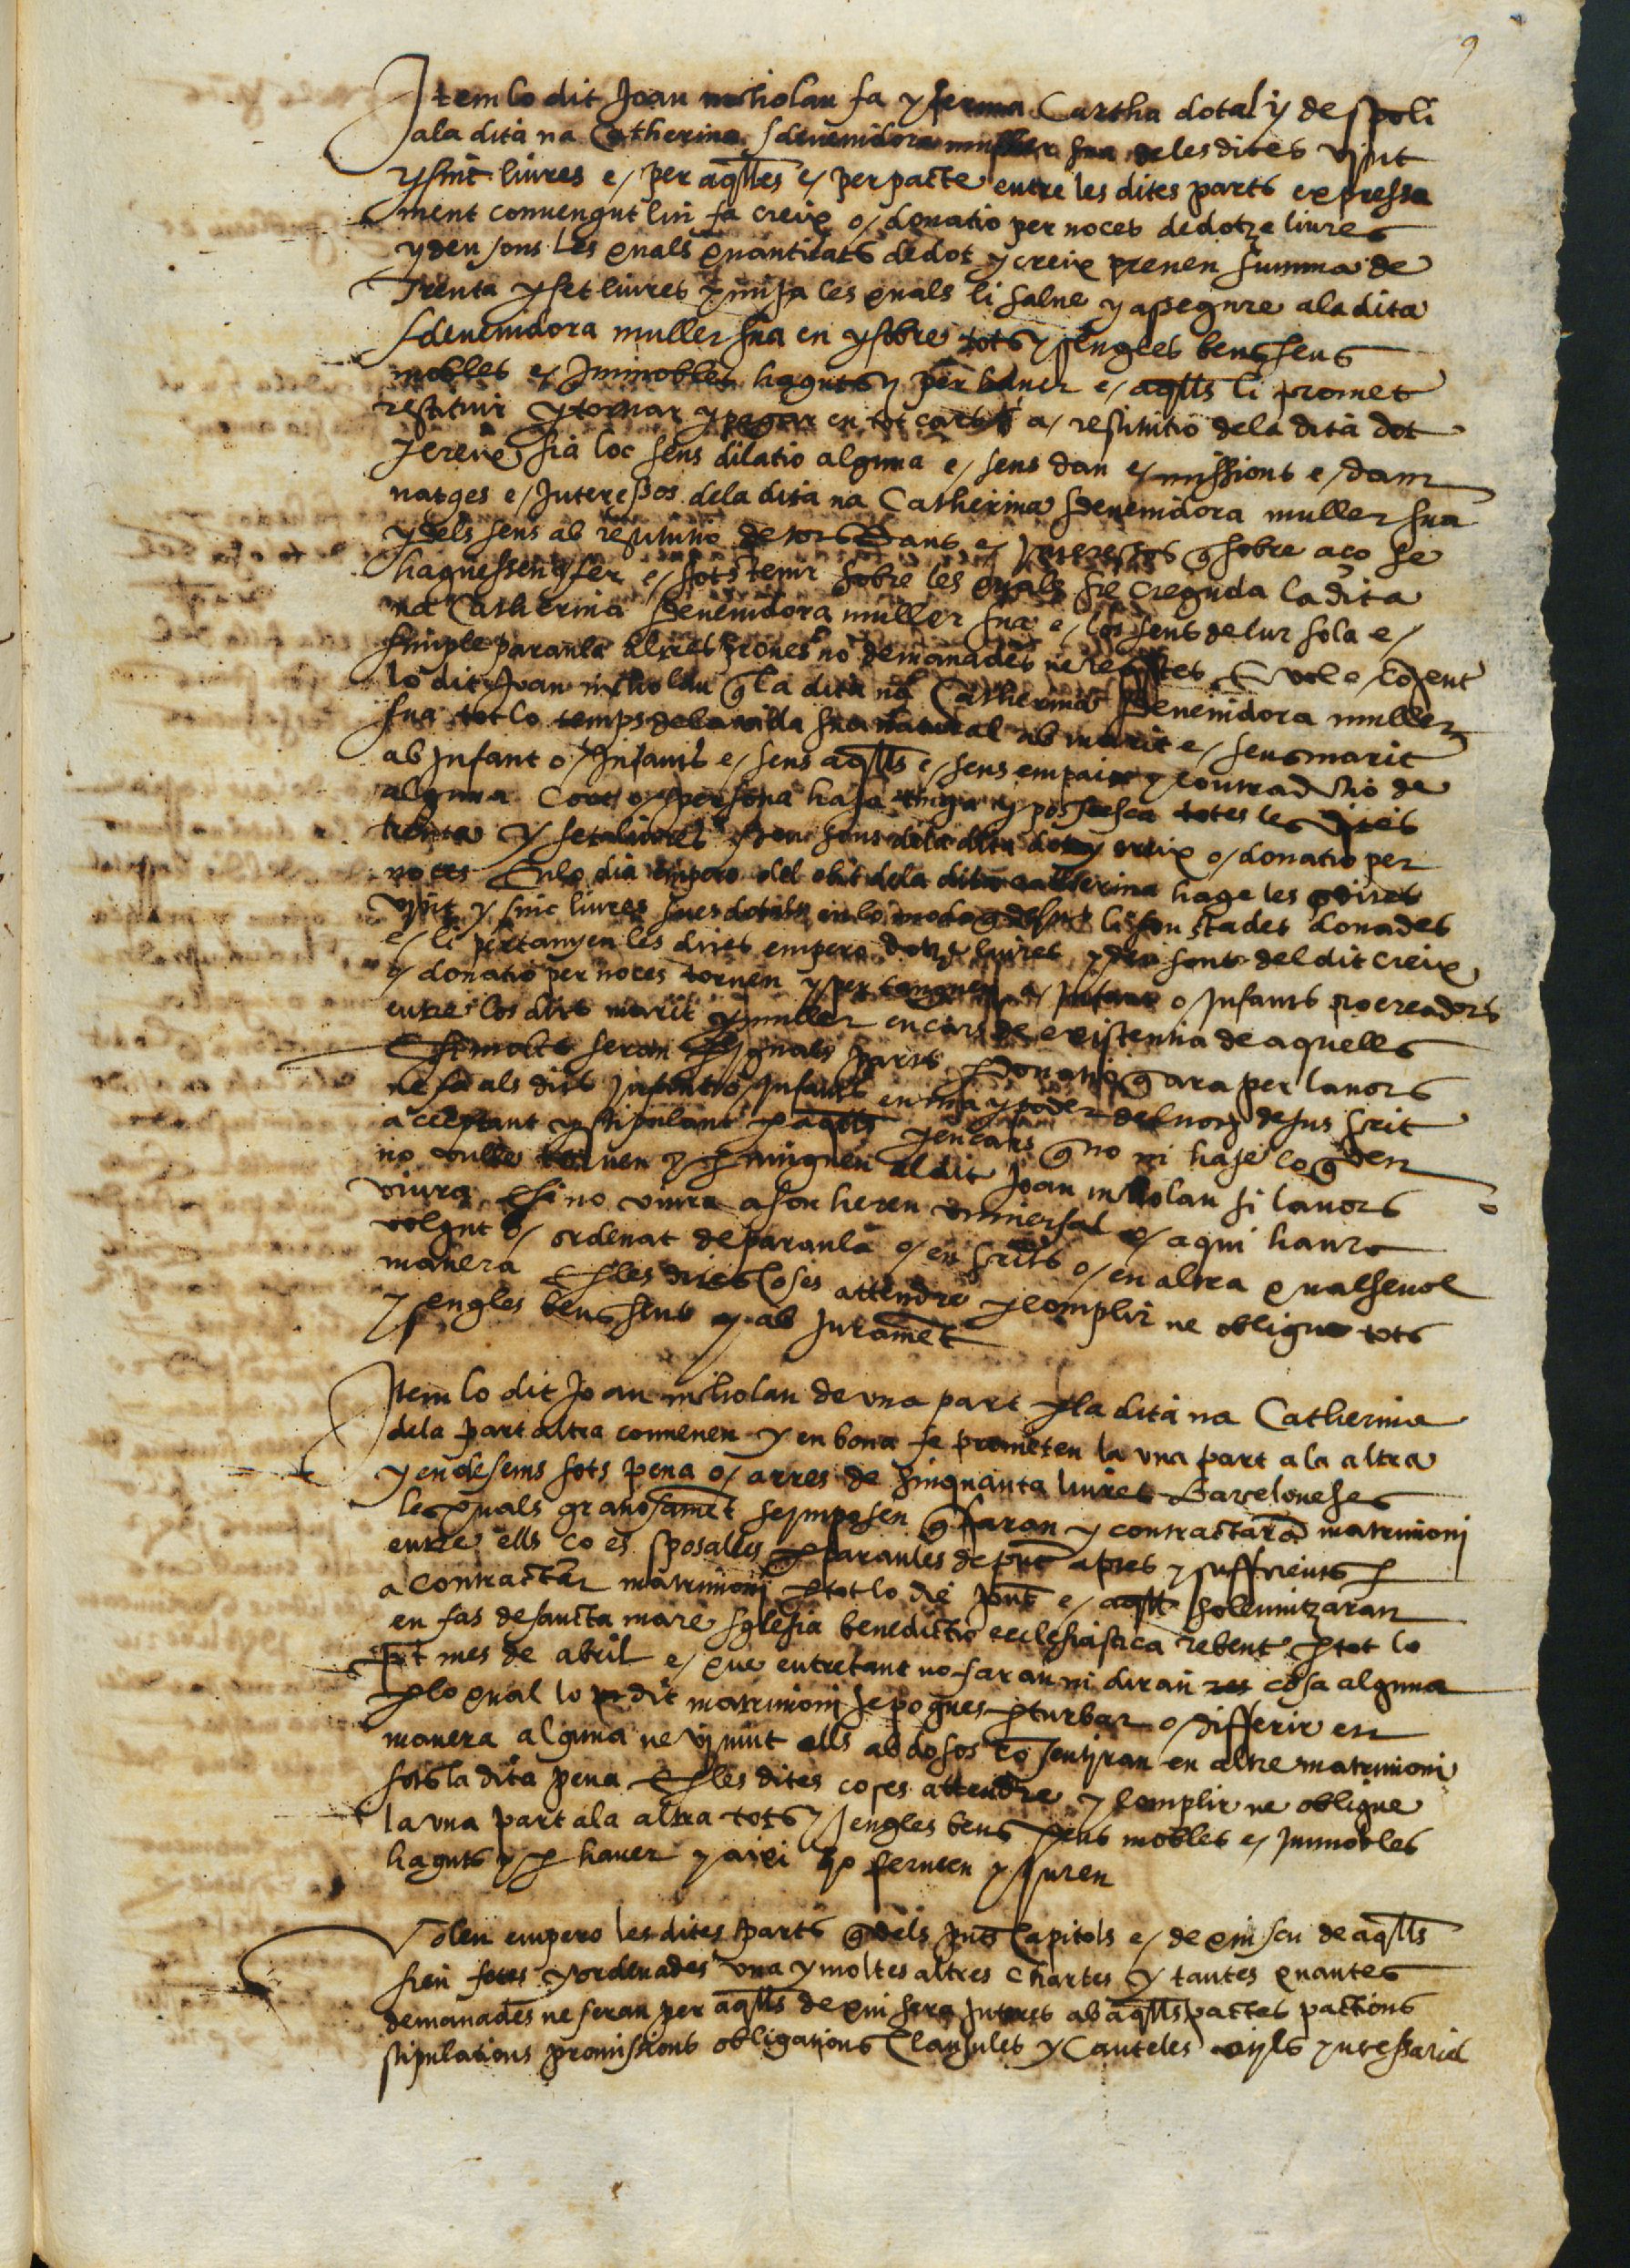 9
Item lo dit Joan nicholau fa y ferma Cartha dotal y de spoli
a la dita na Catherina sdevenidora muller sua de les dites vint
y sinc liures e per aqlls e per pacte entre les dites parts expressa
ment convengut lin fa creix o donatio per noces de dotze liures
y deu sous les quals quantitats de dot y creix prenen summa de
Trenta y set liures y mija les quals li salve y assegure a la dita
sdevenidora muller sua en y sobre tots y sengles bens seus
mobles e Immobles haguts y per haver e aqlls li promet
restituir y tornar y pagar en tot cars q a restitutio dela dita dot
y creix sia loc sens dilatio alguna e sens dan e missions e dam
natges e Interessos dela dita na Catherina sdevenidora muller sua
y dels seus ab restitutio de tots Dans e Interessos q sobre aço se
haguessen q fer e sostenir sobre les quals sie creguda la dita
na Catherina sdevenidora muller sua e los seus de lur sola e
simple paraula altres proves no demanades ne reqstes E vol e cosent
lo dit Joan nicholau q la dita na Catherina sdevenidora muller
sua tot lo temps dela vida sua natural ab marit e sens marit
ab Infant o Infants e sens aqlls e sens empaix y contradictio de
alguna Cort o persona haja tinga y possehesca totes les dites
trenta y set liures y deu sous dela dita dot y creix o donatio per
noces Enlo dia empero del obit dela dita catherina hage les dites
vint y sinc liures sues dotals en lo modo q desus li son stades donades
e li pertanyen les dites empero dotze liures y deu sous del dit creix
e donatio per noces tornen y pertanguen a Infant o Infants procreadors
entre los dits marit y muller en cars de existentia de aquells
E si molts seran p yguals parts Donatio q ara per lavors
ne fa als dits Infant o Infants en ma y poder del not desus scrit
acceptant y stipulant p aqlls y en cars q no ni haje lo q deu
no vulle tornen y p vinguen al dit Joan nicholau si lavors
viura E si no viura a son hereu universal o a qui haura
volgut o ordenat de paraula o en scrits o en altra qualsevol
manera E p les dites coses attendre y complir ne obligue tots
y sengles bens seus y ab Jurament
Item lo dit Joan nicholau de una part y la dita na Catherina
dela part altra convenen y en bona fe prometen la una part a la altra
y endesems sots pena o arres de sinquanta liures Barceloneses
les quals graciosament se ymposen q faran y contractaran matrimoni
entre ells ço es sposalles p paraules de pnt aptes y sufficients p
a contractar matrimoni p tot lo die pnt e aqll solemnitzaran
en fas de sancta mare sglesia benedictio ecclesiastica rebent p tot lo
pnt mes de abril e que entretant no faran ni diran res cosa alguna
p lo qual lo p dit matrimoni se pogues pturbar o differir en
manera alguna ne vivint ells abdosos cosentiran en altre matrimoni
sots la dita pena E p les dites coses attendre y complir ne obligue
la una part ala altra tots y sengles bens seus mobles e Immobles
haguts y p haver y axi ho fermen y juren
Volen empero les dites parts q dels pnts Capitols e de quiscu de aqlls
sien fetes y ordenades una y moltes altres Chartes y tantes quantes
demanades ne seran per aqlls de qui sera Interes ab aqlls pactes pactions
stipulations promissions obligations Clausules y Cauteles utils y necessaries